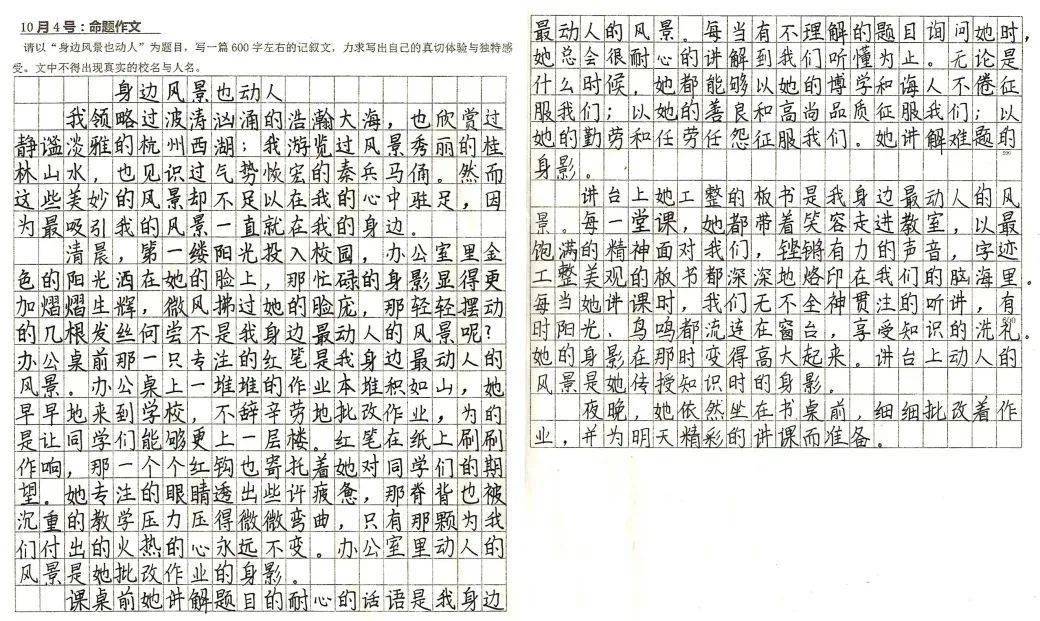 10月4号：命题作文
请以“身边风景也动人”为题目，写一篇600字左右的记叙文，力求写出自己的真切体验与独特感
受。文中不得出现真实的校名与人名。
身边风景也动人
我领略过波涛汹涌的浩瀚大海，也欣赏过
静谧淡雅的杭州西湖；我游览过风景秀丽的桂
林山水，也见识过气势恢宏的秦兵马俑。然而
这些美妙的风景却不足以在我的心中驻足，因
为最吸引我的风景一直就在我的身边。
清晨，第一缕阳光投入校园，办公室里金
色的阳光洒在她的脸上，那忙碌的身影显得更
加熠熠生辉，微风拂过她的脸庞，那轻轻摆动
的几根发丝何尝不是我身边最动人的风景呢？
办公桌前那一只专注的红笔是我身边最动人的
风景。办公桌上一堆堆的作业本堆积如山，她
早早地来到学校，不辞辛劳地批改作业，为的
是让同学们能够更上一层楼。红笔在纸上刷刷
作响，那一个个红钩也寄托着她对同学们的期
望。她专注的眼睛透出些许疲惫，那脊背也被
沉重的教学压力压得微微弯曲，只有那颗为我
们付出的火热的心永远不变。办公室里动人的
风景是她批改作业的身影。
课桌前她讲解题目的耐心的话语是我身边
最动人的风景。每当有不理解的题目询问她时，
她总会很耐心的讲解到我们听懂为止。无论是
什么时候，她都能够以她的博学和诲人不倦征
服我们；以她的善良和高尚品质征服我们；以
她的勤劳和任劳任怨征服我们。她讲解难题的
身影。
讲台上她工整的板书是我身边最动人的风
景。每一堂课，她都带着笑容走进教室，以最
饱满的精神面对我们，铿锵有力的声音，字迹
工整美观的板书都深深地烙印在我们的脑海里。
每当她讲课时，我们无不全神贯注的听讲，有
时阳光、鸟鸣都流连在窗台，享受知识的洗礼。
她的身影在那时变得高大起来。讲台上动人的
风景是她传授知识时的身影。
夜晚，她依然坐在书桌前，细细批改着作
业，并为明天精彩的讲课而准备。